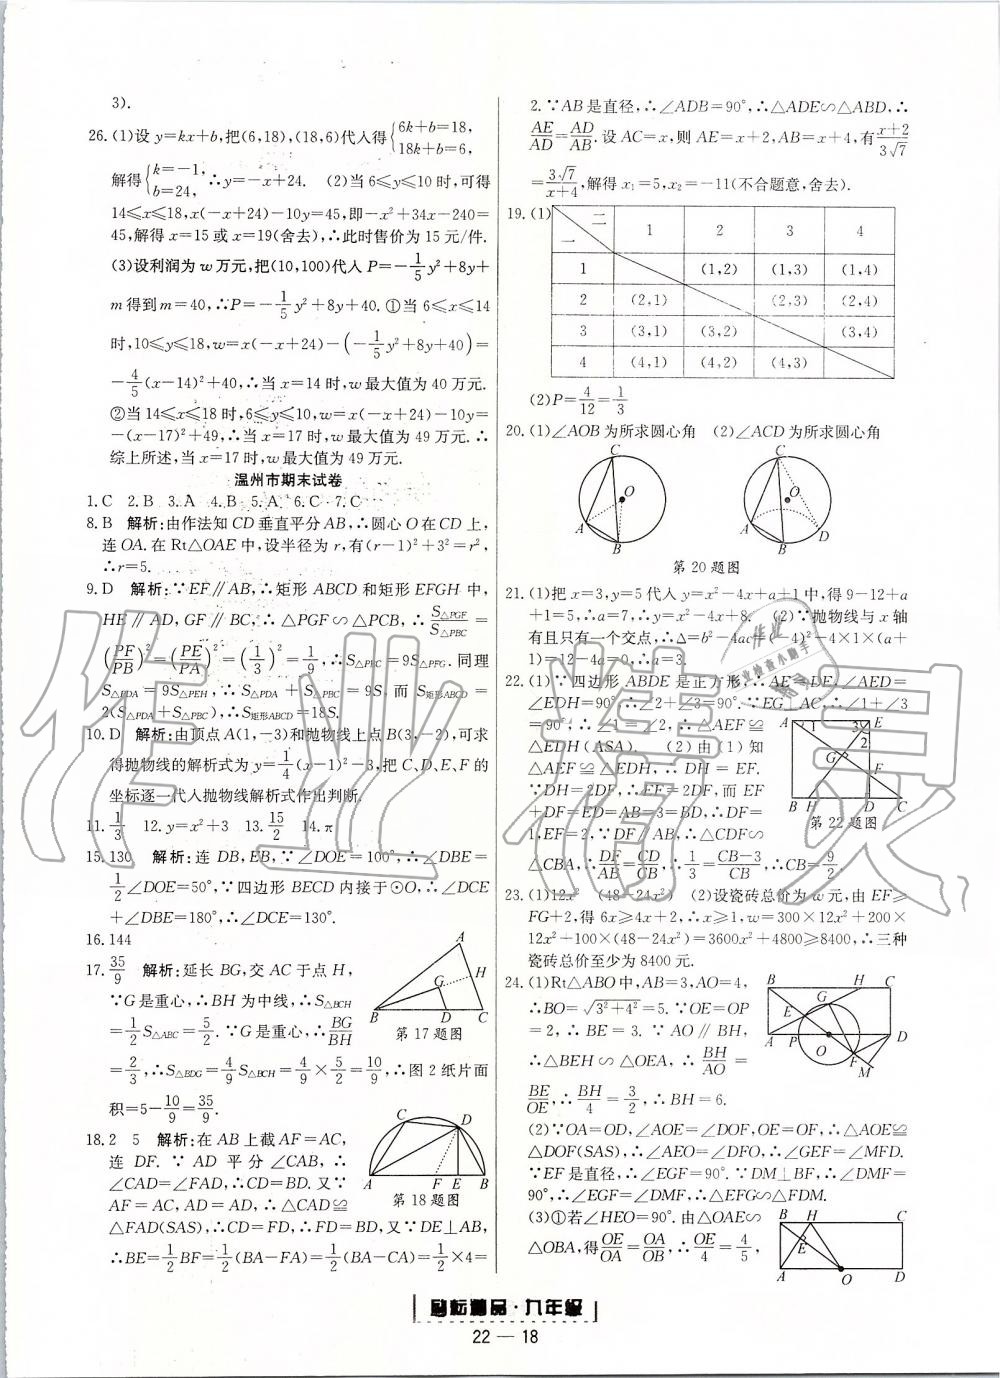 3).
26.(1)设 y=kx+b,把(6,18),(18,6)代入得{6k+b=18, 18k+b=6,
解得{k=−1, b=24, ∴y=−x+24. (2)当 6≤y≤10 时,可得
14≤x≤18,x(−x+24)−10y=45,即−x²+34x−240=
45,解得 x=15或 x=19(舍去),∴此时售价为 15 元/件.
(3)设利润为 w 万元,把(10,100)代入 P=−1/5y²+8y+
m 得到 m=40,∴P=−1/5y²+8y+40.①当 6≤x≤14
时,10≤y≤18,w=x(−x+24)−(−1/5y²+8y+40)=
−4/5(x−14)²+40,∴当 x=14 时,w 最大值为 40 万元.
②当 14≤x≤18 时,6≤y≤10,w=x(−x+24)−10y=
−(x−17)²+49,∴当 x=17 时,w 最大值为 49 万元.∴
综上所述,当 x=17 时,w 最大值为 49 万元.
温州市期末试卷
1.C 2.B 3.A 4.B 5.A 6.C 7.C
8.B 解析:由作法知 CD 垂直平分 AB,∴圆心 O 在 CD 上,
连 OA.在 Rt△OAE 中,设半径为 r,有(r−1)²+3²=r²,
∴r=5.
9.D 解析:∵EF∥AB,∴矩形 ABCD 和矩形 EFGH 中,
HE∥AD,GF∥BC,∴△PGF∽△PCB,∴S△PGF/S△PBC=
(PF/PB)²=(PE/PA)²=(1/3)²=1/9,∴S△PBC=9S△PFG.同理
S△PDA=9S△PEH,∴S△PDA+S△PBC=9S,而 S矩形ABCD=
2(S△PDA+S△PBC),∴S矩形ABCD=18S.
10.D 解析:由顶点 A(1,−3)和抛物线上点 B(3,−2),可求
得抛物线的解析式为 y=1/4(x−1)²−3,把 C、D、E、F 的
坐标逐一代入抛物线解析式作出判断.
11.1/3 12.y=x²+3 13.15/2 14.π
15.130 解析:连 DB,EB,∵∠DOE=100°,∴∠DBE=
1/2∠DOE=50°,∵四边形 BECD 内接于⊙O,∴∠DCE
+∠DBE=180°,∴∠DCE=130°.
16.144
17.35/9 解析:延长 BG,交 AC 于点 H,
∵G是重心,∴BH 为中线,∴S△BCH
=1/2S△ABC=5/2.∵G是重心,∴BG/BH
=2/3,∴S△BDG=4/9S△BCH=4/9×5/2=10/9,∴图 2 纸片面
积=5−10/9=35/9.
A
G
H
B
D
C
第 17 题图
18.2 5 解析:在 AB 上截 AF=AC,
连 DF.∵AD 平分∠CAB,∴
∠CAD=∠FAD,∴CD=BD.又∵
AF=AC,AD=AD,∴△CAD≌
△FAD(SAS),∴CD=FD,∴FD=BD,又∵DE⊥AB,
∴BE=1/2BF=1/2(BA−FA)=1/2(BA−CA)=1/2×4=
C
D
A
F
E
B
第 18 题图
2.∵AB 是直径,∴∠ADB=90°,∴△ADE∽△ABD,∴
AE/AD=AD/AB.设 AC=x,则 AE=x+2,AB=x+4,有x+2/3√7
=3√7/x+4,解得 x₁=5,x₂=−11(不合题意,舍去).
19.(1)
一 二 1 2 3 4
1 (1,2) (1,3) (1,4)
2 (2,1) (2,3) (2,4)
3 (3,1) (3,2) (3,4)
4 (4,1) (4,2) (4,3)
(2)P=4/12=1/3
20.(1)∠AOB为所求圆心角 (2)∠ACD为所求圆心角
C
O
A
B
C
O
A
B
D
第 20 题图
21.(1)把 x=3,y=5 代入 y=x²−4x+a+1 中,得 9−12+a
+1=5,∴a=7,∴y=x²−4x+8. (2)∵抛物线与 x 轴
有且只有一个交点,∴Δ=b²−4ac=(−4)²−4×1×(a+
1)=12−4a=0,∴a=3.
22.(1)∵四边形 ABDE 是正方形,∴AE=DE,∠AED=
∠EDH=90°,∴∠2+∠3=90°.∵EG⊥AC,∴∠1+∠3
=90°,∴∠1=∠2,∴△AEF≌
△EDH(ASA). (2)由(1)知
△AEF≌△EDH,∴DH=EF.
∵DH=2DF,∴EF=2DF,而 EF
+DF=ED=AB=3=BD,∴DF=
1,EF=2,∵DF∥AB,∴△CDF∽
△CBA,∴DF/AB=CD/CB,∴1/3=CB−3/CB,∴CB=9/2.
A
E
1
3
2
G
F
B
H
D
C
第 22 题图
23.(1)12x² (48−24x²) (2)设瓷砖总价为 w 元,由 EF≥
FG+2,得 6x≥4x+2,∴x≥1,w=300×12x²+200×
12x²+100×(48−24x²)=3600x²+4800≥8400,∴三种
瓷砖总价至少为 8400 元.
24.(1)Rt△ABO中,AB=3,AO=4,
∴BO=√3²+4²=5.∵OE=OP
=2,∴BE=3.∵AO∥BH,
∴△BEH∽△OEA,∴BH/AO=
BE/OE,∴BH/4=3/2,∴BH=6.
B
H
C
G
E
A
P
O
D
F
M
(2)∵OA=OD,∠AOE=∠DOF,OE=OF,∴△AOE≌
△DOF(SAS),∴∠AEO=∠DFO,∴∠GEF=∠MFD.
∵EF是直径,∴∠EGF=90°.∵DM⊥BF,∴∠DMF=
90°,∴∠EGF=∠DMF,∴△EFG∽△FDM.
(3)①若∠HEO=90°.由△OAE∽
△OBA,得OE/OA=OA/OB,∴OE/4=4/5,
B
H
C
E
A
O
D
励标精品·九年级
22—18